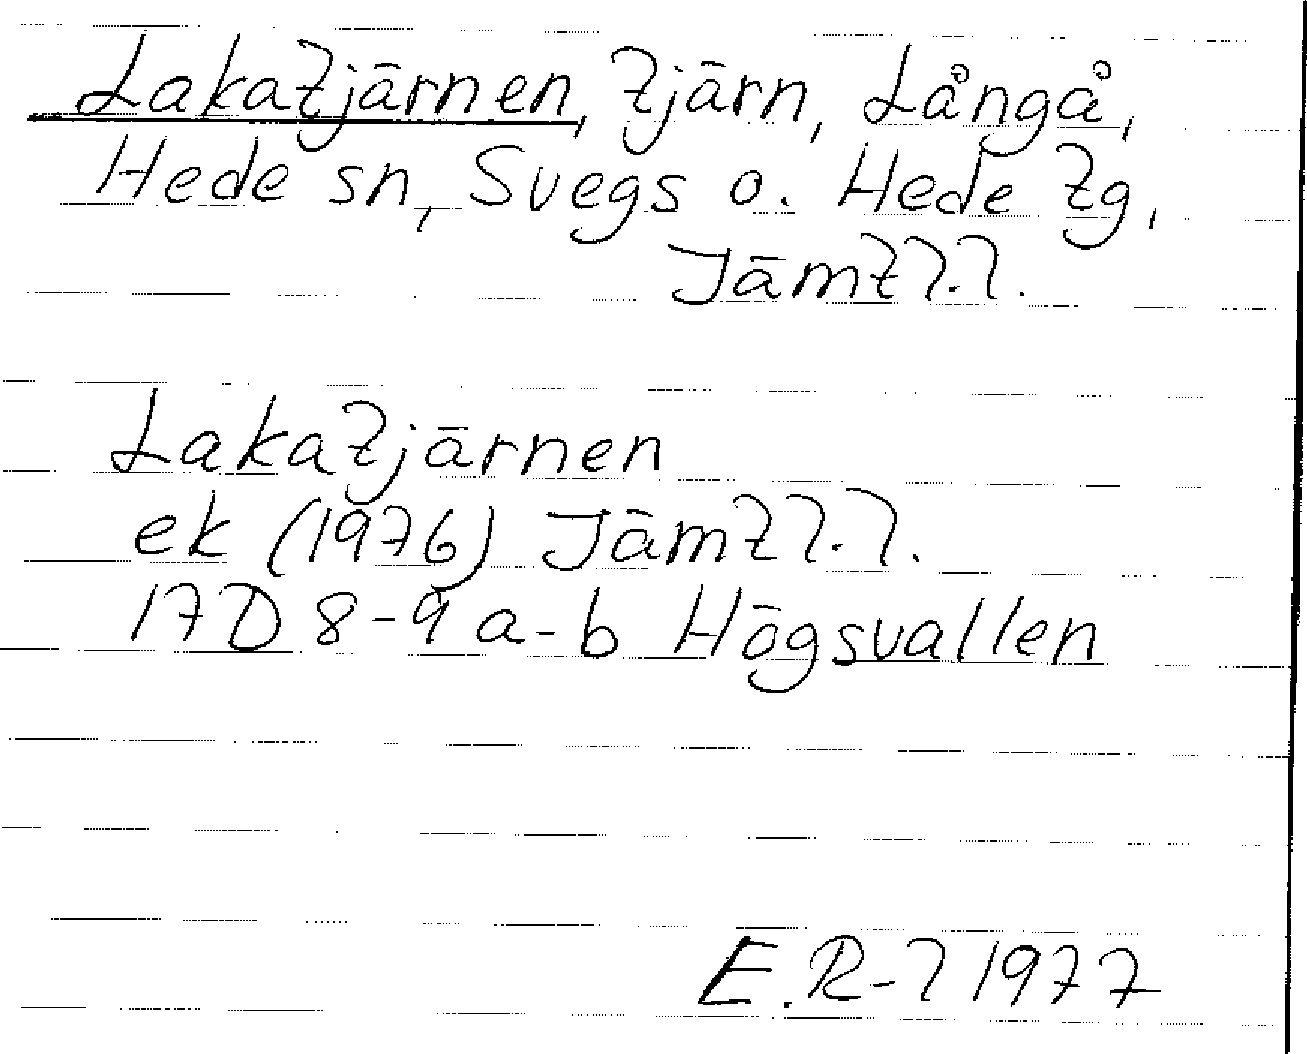 Lakatjärnen, tjärn, Långå,
Hede sn, Svegs o. Hede tg,
Jämtl.l.
Lakatjärnen
ek (1976) Jämtl.l.
17D 8-9 a-b Högsvallen
E.R-l 1977